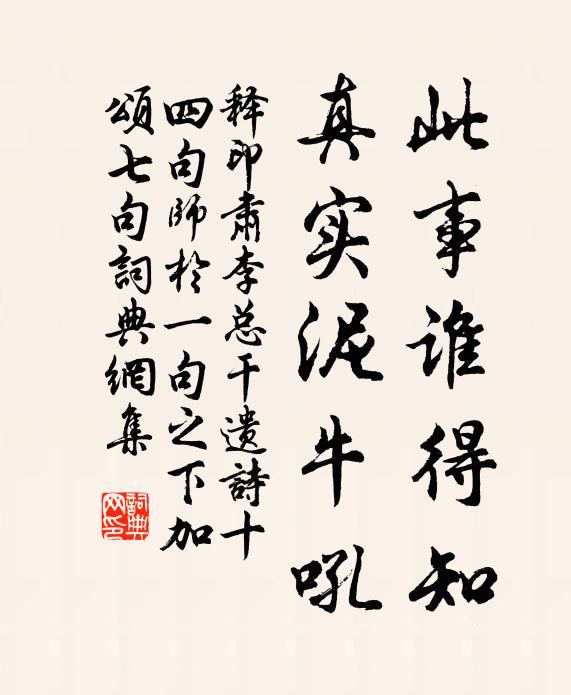 此事谁得知
真实泥牛吼
释印肃李总干遗詩十
四句師於一句之下加
頌七句詞典網集
詞典
网印